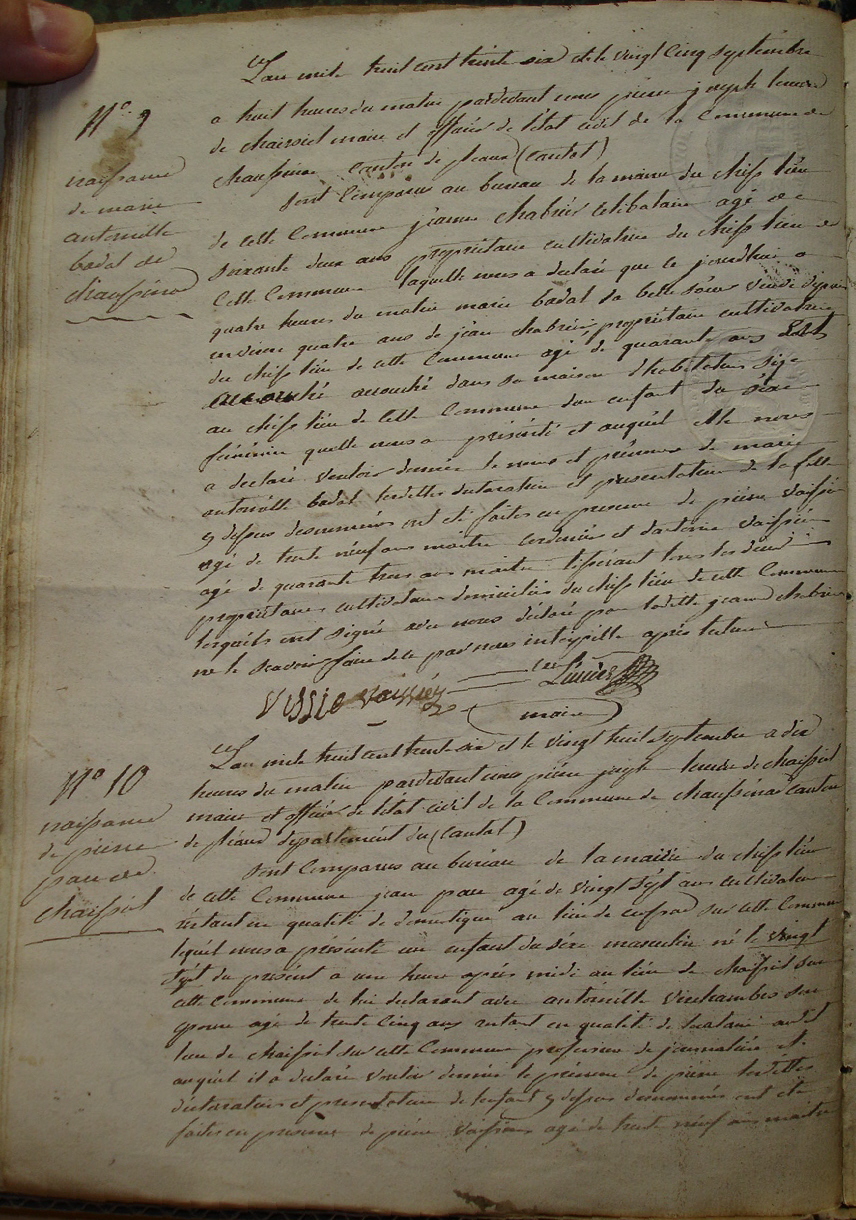 N° 9
naissance
de marie
antoinette
badal de
chaussinas
L'an mile huit cent trente six et le vingt cinq septembre
a huit heures du matin pardevant nous pierre joseph
de chaissiol maire et officier de l'état civil de la Commune de
chaussinas canton de pleaux (cantal)
sont Comparus au bureau de la mairie du chef lieu
de cette Commune jeanne chabrier celibataire agé de
soixante deux ans propriétaire cultivatrice du chef lieu de
cette Commune laquelle nous a déclaré que ce jourdhui a
quatre heures du matin marie badal sa belle sœur veuve depuis
environ quatre ans de jean chabrier, propriétaire cultivatrice
du chef lieu de cette Commune agé de quarante ans Est
accouché dans sa maison d'habitation size
au chef lieu de cette Commune dun enfant du sèxe
féminin quelle nous a présenté et auquel elle nous
a declaré vouloir donner le nom et prénoms de marie
antoinette badal lesdittes declaration et presentation de la fille
y dessus denommées ont été faites en presence de pierre vaissié
agé de trente neuf ans maitre cordonier et d'antoine vaissier
agé de quarante trois ans maitre tisserant tous les deux
propriétaires cultivateurs domiciliés du chef lieu de cette Commune
lesquels ont signé avec nous déclaré par laditte jeanne chabrier
ne le scavoir faire de ce par nous interpellée après lecture
Vissie vaissiey
maire
N° 10
naissance
de pierre
pau de
chaissiol
L'an mile huit cent trente six et le vingt huit septembre a dix
heures du matin pardevant nous pierre joseph de chaissiol
maire et officier de l'état civil de la Commune de chaussinas canton
de pleaux département du (cantal)
sont Comparus au bureau de la mairie du chef lieu
de cette Commune jean pau agé de vingt sept ans cultivateur
restant en qualité de domestique au lieu de sur cette Commune
lequel nous a présenté un enfant du sèxe masculin né le vingt
sept du présent a une heure après midi au lieu de chaissiol sur
cette Commune de lui déclarant avec antoinette son
epouse agé de trente Cinq ans restant en qualité de locataire audit
lieu de chaissiol sur cette Commune profession de journalière et
auquel il a declaré vouloir donner le prénom de pierre lesdittes
déclaration et presentation de lenfant y dessus denommés ont été
faites en presence de pierre vaissier agé de trente neuf ans maitre